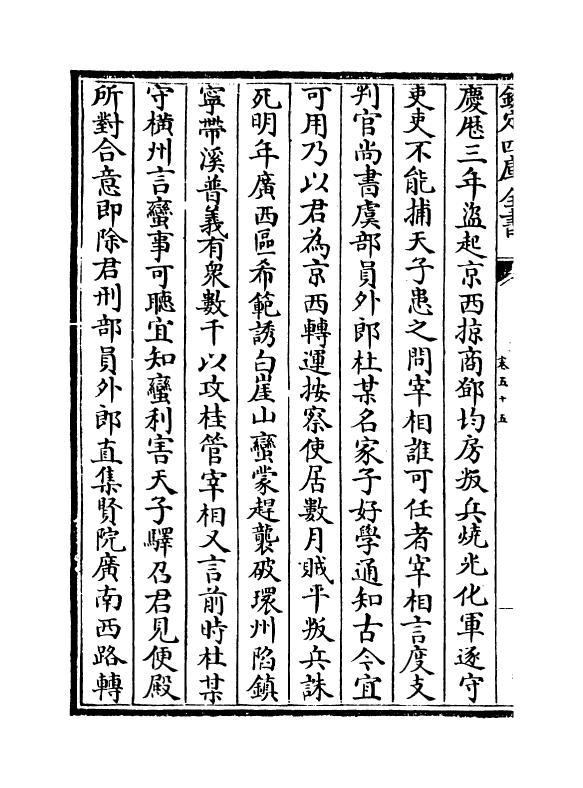 欽定四庫全書
卷五十五
慶厯三年盜起京西掠商鄧均房叛兵燒光化軍逐守
吏吏不能捕天子患之問宰相誰可任者宰相言度支
判官尚書虞部員外郎杜某名家子好學通知古今宜
可用乃以君為京西轉運按察使居數月賊平叛兵誅
死明年廣西區希範誘白崖山蠻蒙趕襲破環州陷鎮
寧帶溪普義有衆數千以攻桂管宰相又言前時杜某
守横州言蠻事可聽宜知蠻利害天子驛召君見便殿
所對合意即除君刑部員外郎直集賢院廣南西路轉